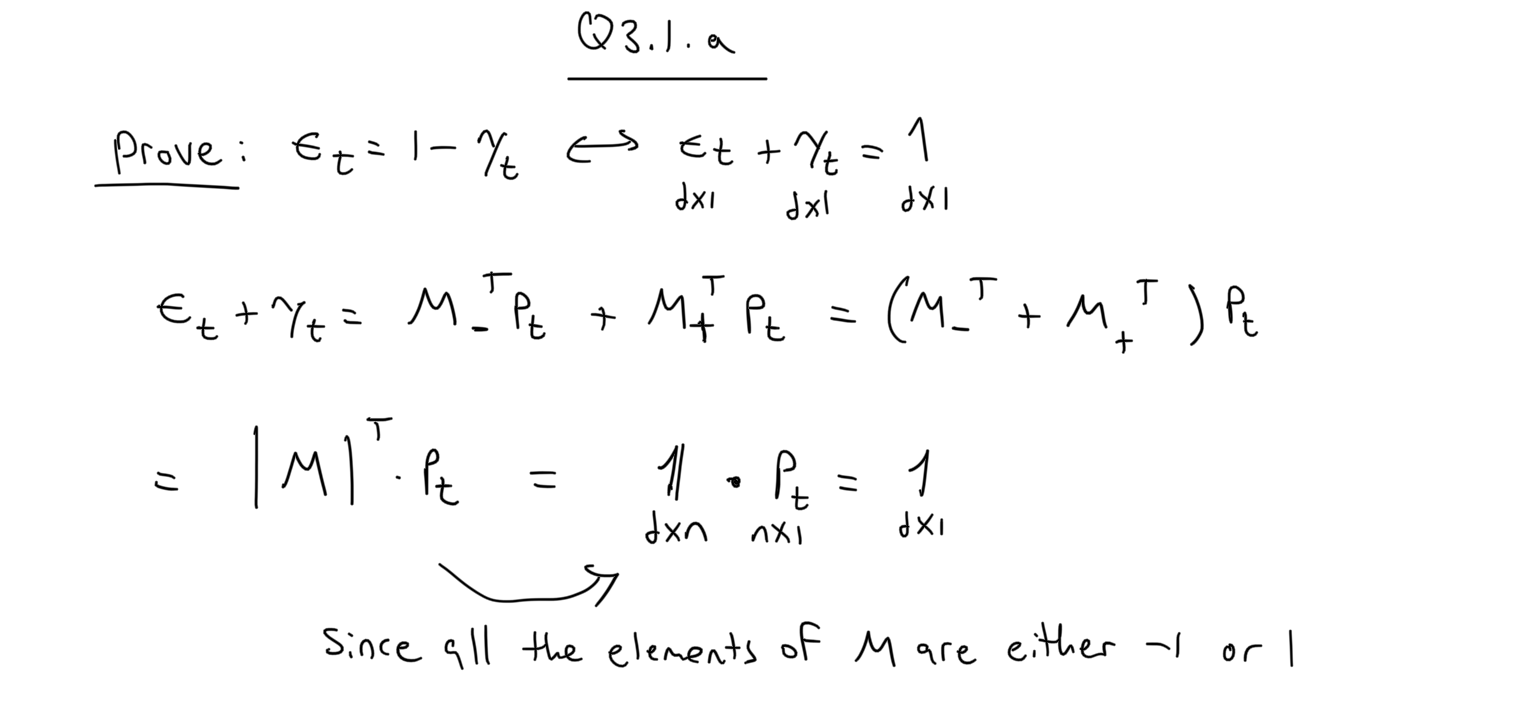 Q3.1.a
Prove: ϵₜ = 1 - γₜ ⟷ ϵₜ + γₜ = 1
dx1 dx1 dx1
ϵₜ + γₜ = M₋ᵀ Pₜ + M₊ᵀ Pₜ = (M₋ᵀ + M₊ᵀ) Pₜ
= |M|ᵀ · Pₜ = 𝟙 · Pₜ = 1
dxn nx1 dx1
Since all the elements of M are either -1 or 1